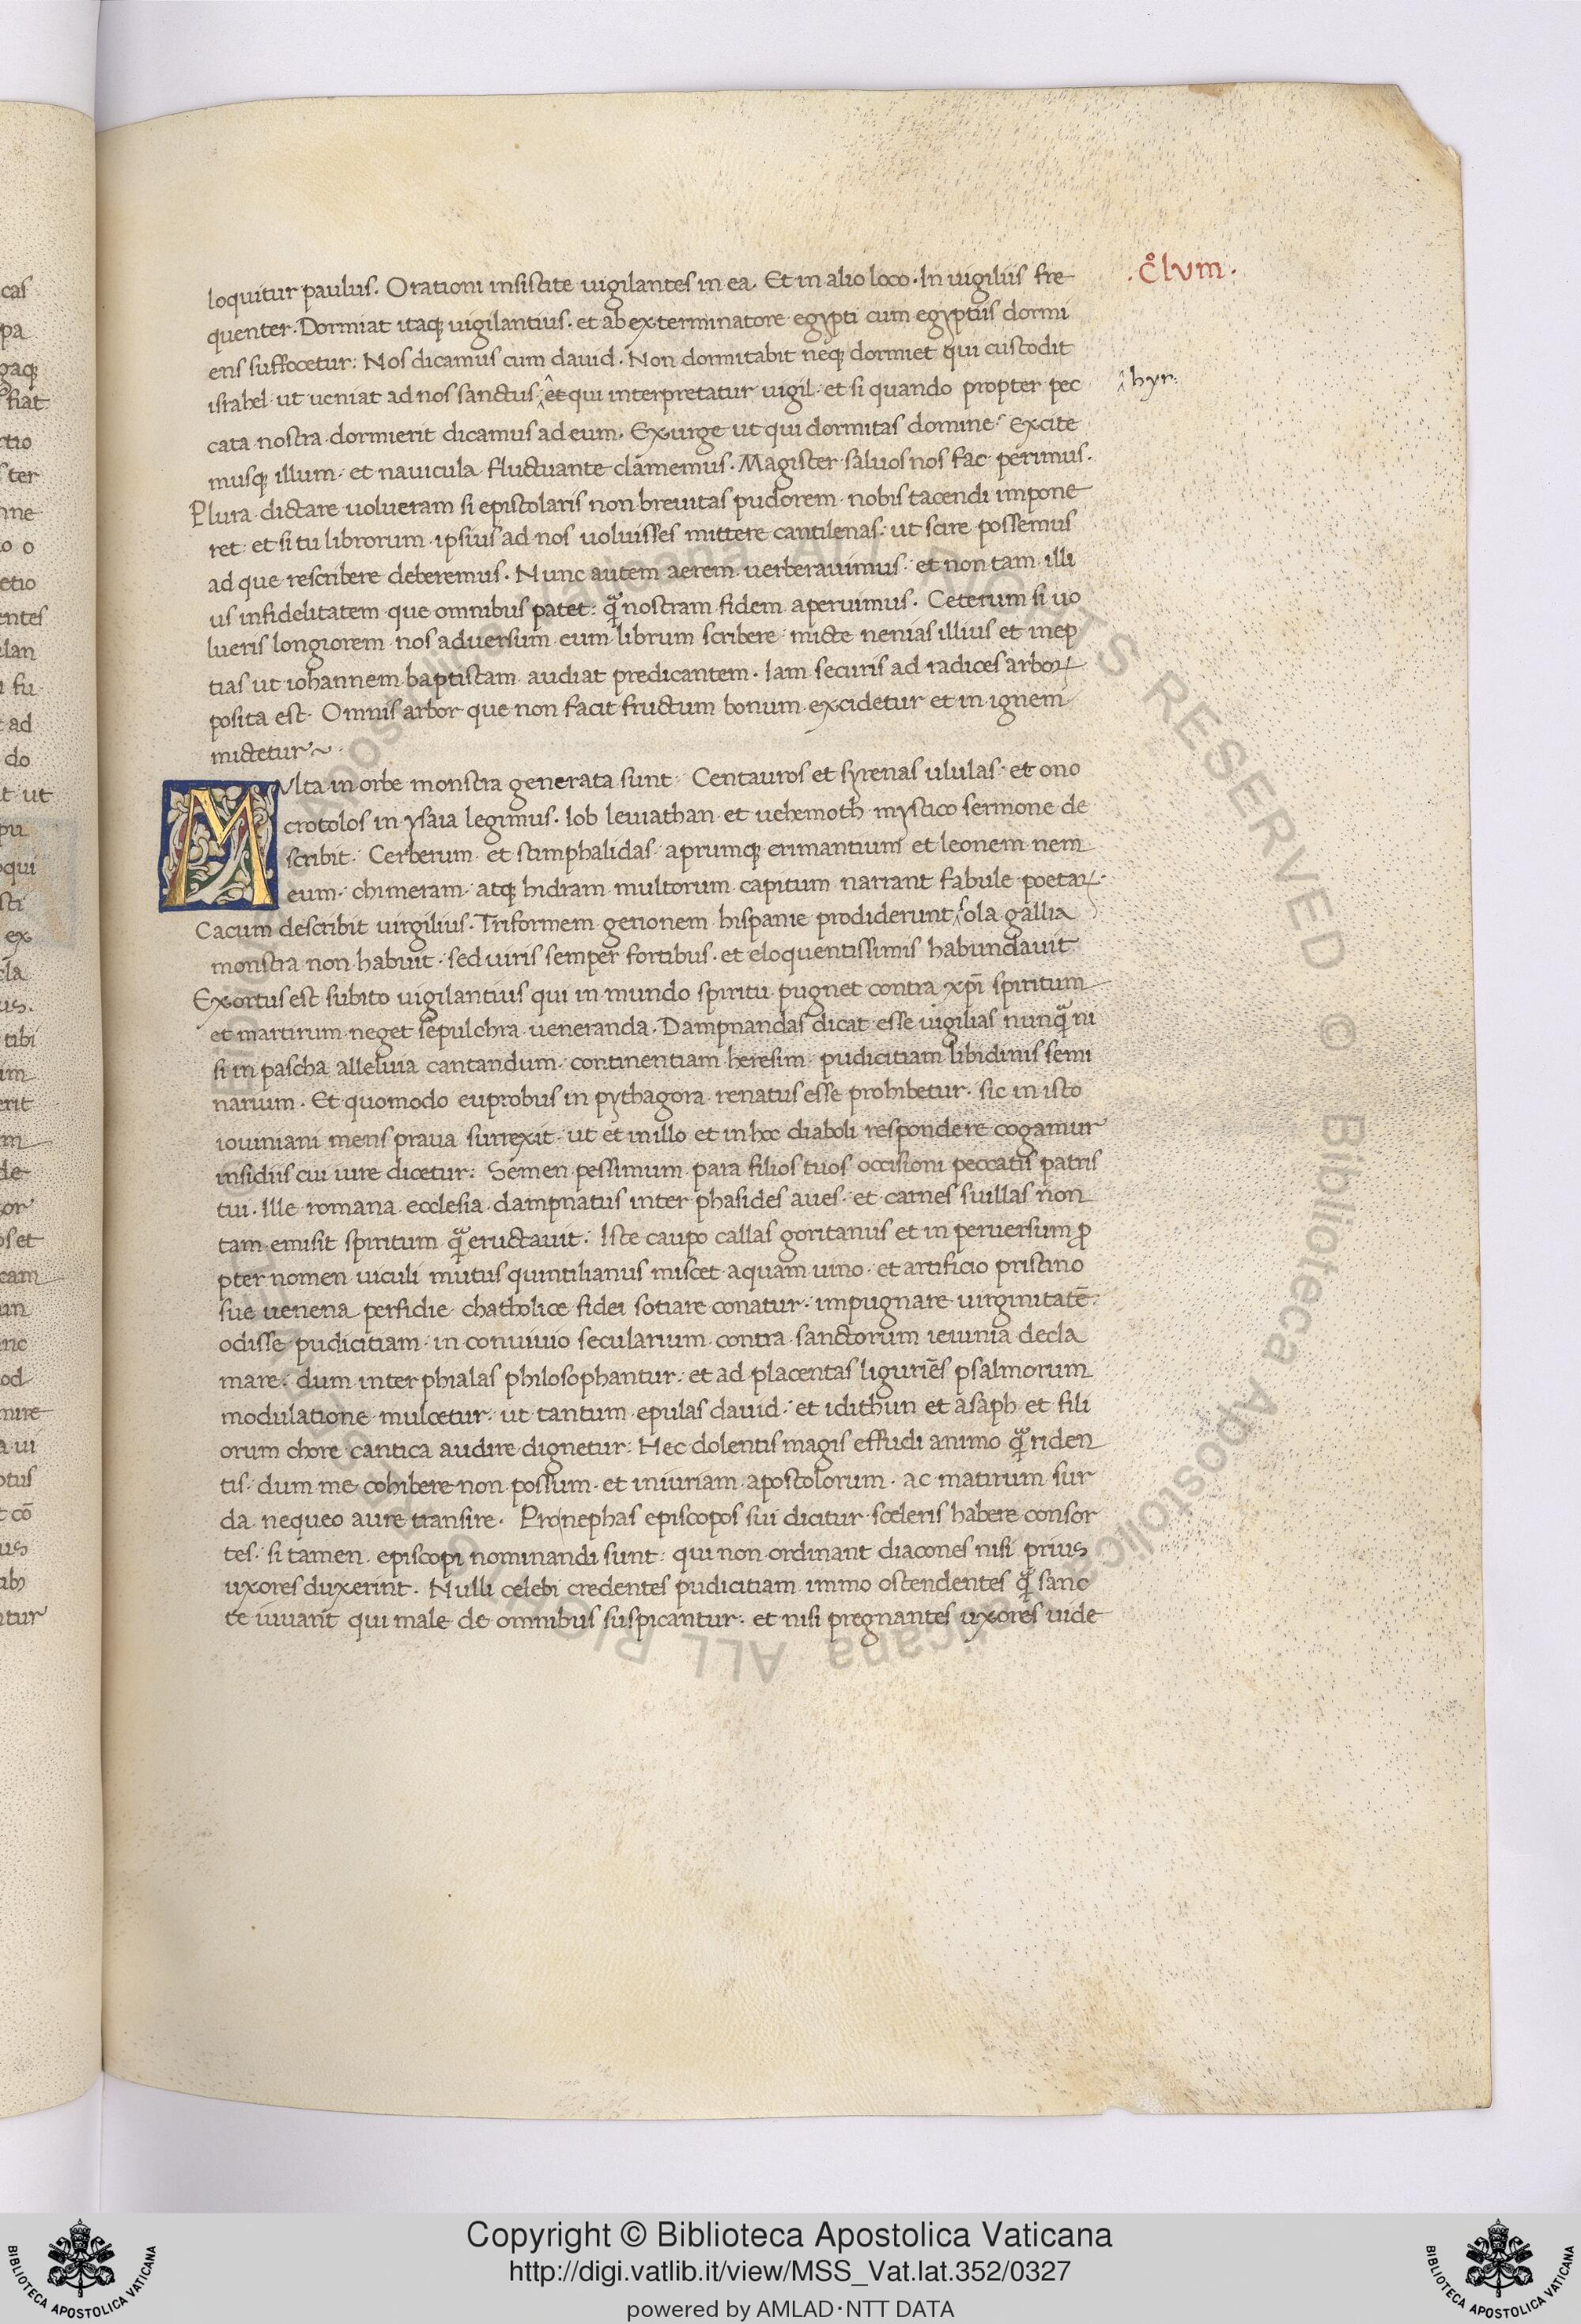 cas
pa
gaqȝ
fiat
ctio
ter
nne
o o
etio
entes
ilan
i fu
t ad
do
it ut
pu
oqui
sti
ex
cla
us.
tibi
im
erit
m
de
cor
os et
cam
un
nc
od
nire
a ui
otus
t cō
us
ibȝ
ntur
.Clvm.
loquitur paulus. Orationi insistite uigilantes in ea. Et in alio loco. In uigiliis fre
quenter. Dormiat itaqȝ uigilantius. et ab exterminatore egypti cum egyptiis dormi
ens suffocetur: Nos dicamus cum dauid. Non dormitabit neqȝ dormiet qui custodit
israhel. ut ueniat ad nos sanctus. ^et qui interpretatur uigil. et si quando propter pec
^hyr:
cata nostra dormierit dicamus ad eum. Exurge ut qui dormitas domine. Excite
musqȝ illum. et nauicula fluctuante clamemus. Magister saluos nos fac perimus.
Plura dictare uolueram si epistolaris non breuitas pudorem nobis tacendi impone
ret. et si tu librorum ipsius ad nos uoluisses mittere cantilenas. ut scire possemus
ad que rescribere deberemus. Nunc autem aerem uerberauimus. et non tam illi
us infidelitatem que omnibus patet: qᷓ nostram fidem aperuimus. Ceterum si uo
lueris longiorem nos aduersum eum librum scribere micte nenias illius et inep
tias ut iohannem baptistam audiat predicantem. Iam securis ad radices arborꝝ
posita est. Omnis arbor que non facit fructum bonum excidetur et in ignem
mictetur~.
MVlta in orbe monstra generata sunt. Centauros et syrenas ululas. et ono
crotolos in ysaia legimus. Iob leuiathan et uehemoth mystico sermone de
scribit. Cerberum et stimphalidas aprumqȝ erimantium et leonem nem
eum. chimeram atqȝ hidram multorum capitum narrant fabule poetarꝝ.
Cacum describit uirgilius. Triformem gerionem hispanie prodiderunt sola gallia
monstra non habuit. sed uiris semper fortibus. et eloquentissimis habundauit
Exortus est subito uigilantius qui in mundo spiritu pugnet contra xp̄i spiritum
et martirum neget sepulchra ueneranda. Dampnandas dicat esse uigilias nunqᷓ ni
si in pascha alleluia cantandum. continentiam heresim pudicitiam libidinis semi
narium. Et quomodo euprobus in pythagora renatus esse prohibetur. sic in isto
iouiniani mens praua surrexit. ut et in illo et in hoc diaboli respondere cogamur
insidiis cui iure dicetur: Semen pessimum para filios tuos occisioni peccatis patris
tui. Ille romana ecclesia dampnatus inter phasides aues. et carnes suillas non
tam emisit spiritum qᷓ eructauit. Iste caupo callas goritanus et in peruersum ꝓ
pter nomen uiculi mutus quintilianus miscet aquam uino. et artificio pristino
sue uenena perfidie chatholice fidei sotiare conatur. impugnare uirginitatē.
odisse pudicitiam in conuiuio secularium contra sanctorum ieiunia decla
mare. dum inter phialas philosophantur. et ad placentas liguriēs psalmorum
modulatione mulcetur. ut tantum epulas dauid. et idithun et asaph et fili
orum chore cantica audire dignetur: Hec dolentis magis effudi animo qᷓ riden
tis. dum me cohibere non possum. et iniuriam apostolorum. ac matirum sur
da nequeo aure transire. Pronephas episcopos sui dicitur sceleris habere consor
tes. si tamen episcopi nominandi sunt: qui non ordinant diacones nisi prius
uxores duxerint. Nulli celebi credentes pudicitiam immo ostendentes qᷓ sanc
te uiuant qui male de omnibus suspicantur. et nisi pregnantes uxores uide
Biblioteca Apostolica Vaticana ALL RIGHTS RESERVED ©
Copyright © Biblioteca Apostolica Vaticana
http://digi.vatlib.it/view/MSS_Vat.lat.352/0327
powered by AMLAD·NTT DATA
BIBLIOTECA APOSTOLICA VATICANA
BIBLIOTECA APOSTOLICA VATICANA